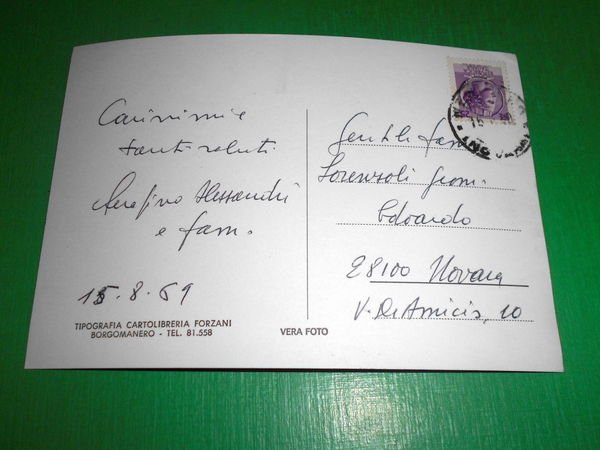 Carissimi e
tanti saluti
Serafino Alessandri
e fam.
15.8.69
TIPOGRAFIA CARTOLIBRERIA FORZANI
BORGOMANERO - TEL. 81.558
VERA FOTO
Gentile fam.
Lorenzoli Geom.
Edoardo
28100 Novara
V. De Amicis, 10